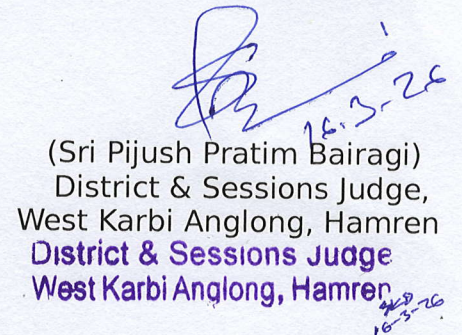 16.3-26
(Sri Pijush Pratim Bairagi)
District & Sessions Judge,
West Karbi Anglong, Hamren
District & Sessions Judge
West Karbi Anglong, Hamren
16-3-26